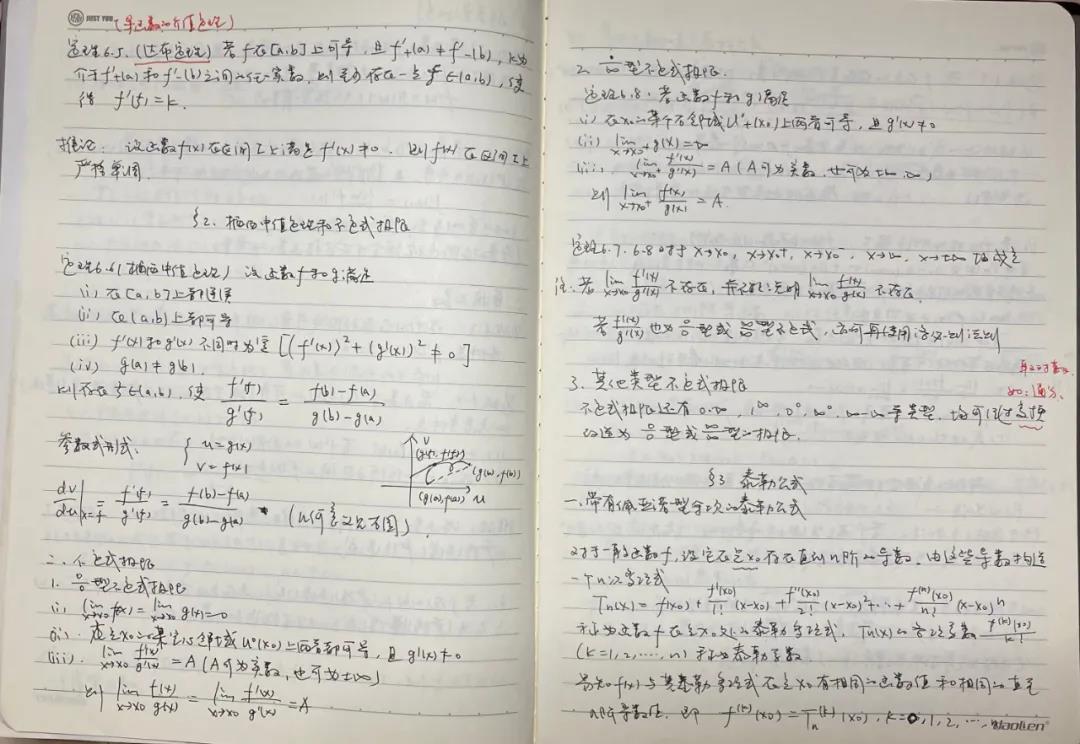 JUST YOU
(导函数的介值定理)
定理6.5.(达布定理) 若f在[a,b]上可导,且f'+(a)≠f'-(b),k为
介于f'+(a)和f'-(b)之间任一实数,则至少存在一点ξ∈(a,b),使
得 f'(ξ)=k.
推论. 设函数f(x)在区间I上满足f'(x)≠0.则f(x)在区间I上
严格单调.
§2. 柯西中值定理和不定式极限
定理6.6(柯西中值定理) 设函数f和g满足
(i) 在[a,b]上都连续
(ii) 在(a,b)上都可导
(iii) f'(x)和g'(x)不同时为零 [(f'(x))²+(g'(x))²≠0]
(iv) g(a)≠g(b).
则存在ξ∈(a,b),使 f'(ξ)/g'(ξ) = (f(b)-f(a))/(g(b)-g(a))
参数式形式. { u=g(x) v=f(x)
v (g(ξ),f(ξ)) (g(b),f(b)) (g(a),f(a)) u
dv/du|x=ξ = f'(ξ)/g'(ξ) = (f(b)-f(a))/(g(b)-g(a)) (几何意义见右图).
二.不定式极限
1. 0/0型不定式极限
(i) lim x→x0 f(x)=lim x→x0 g(x)=0
(ii). 在点x0的某空心邻域U°(x0)上两者都可导,且g'(x)≠0
(iii). lim x→x0 f'(x)/g'(x) =A(A可为实数,也可为±∞)
则 lim x→x0 f(x)/g(x) = lim x→x0 f'(x)/g'(x) =A
2. ∞/∞型不定式极限.
定理6.8.若函数f和g满足
(i) 在x0的某个右邻域U°+(x0)上两者可导,且g'(x)≠0
(ii) lim x→x0+ g(x)=∞
(iii) lim x→x0+ f'(x)/g'(x) =A(A可为实数,也可为±∞,∞)
则 lim x→x0+ f(x)/g(x) =A.
定理6.7、6.8对于x→x0,x→x0+,x→x0-,x→∞,x→±∞均成立
注.若 lim x→x0 f'(x)/g'(x) 不存在,并不能说明 lim x→x0 f(x)/g(x) 不存在.
若f'(x)/g'(x)也为0/0型或∞/∞型不定式,亦可再使用洛必达法则
3. 其他类型不定式极限
不定式极限还有0·∞,1^∞,0^0,∞^0,∞-∞等类型,均可经过变换
改造为0/0型或∞/∞型的极限.
§3 泰勒公式
一.带有佩亚诺型余项的泰勒公式
对于一般函数f,设它在点x0存在直到n阶的导数,由这些导数构造
一个n次多项式
Tn(x)=f(x0)+f'(x0)/1!(x-x0)+f''(x0)/2!(x-x0)²+…+f^(n)(x0)/n!(x-x0)^n
称为函数f在点x0处的泰勒多项式,Tn(x)的各项系数f^(k)(x0)/k!
(k=1,2,…,n)称为泰勒系数.
易知f(x)与其泰勒多项式在点x0有相同的函数值和相同的直至
n阶导数值,即 f^(k)(x0)=Tn^(k)(x0),k=0,1,2,…,